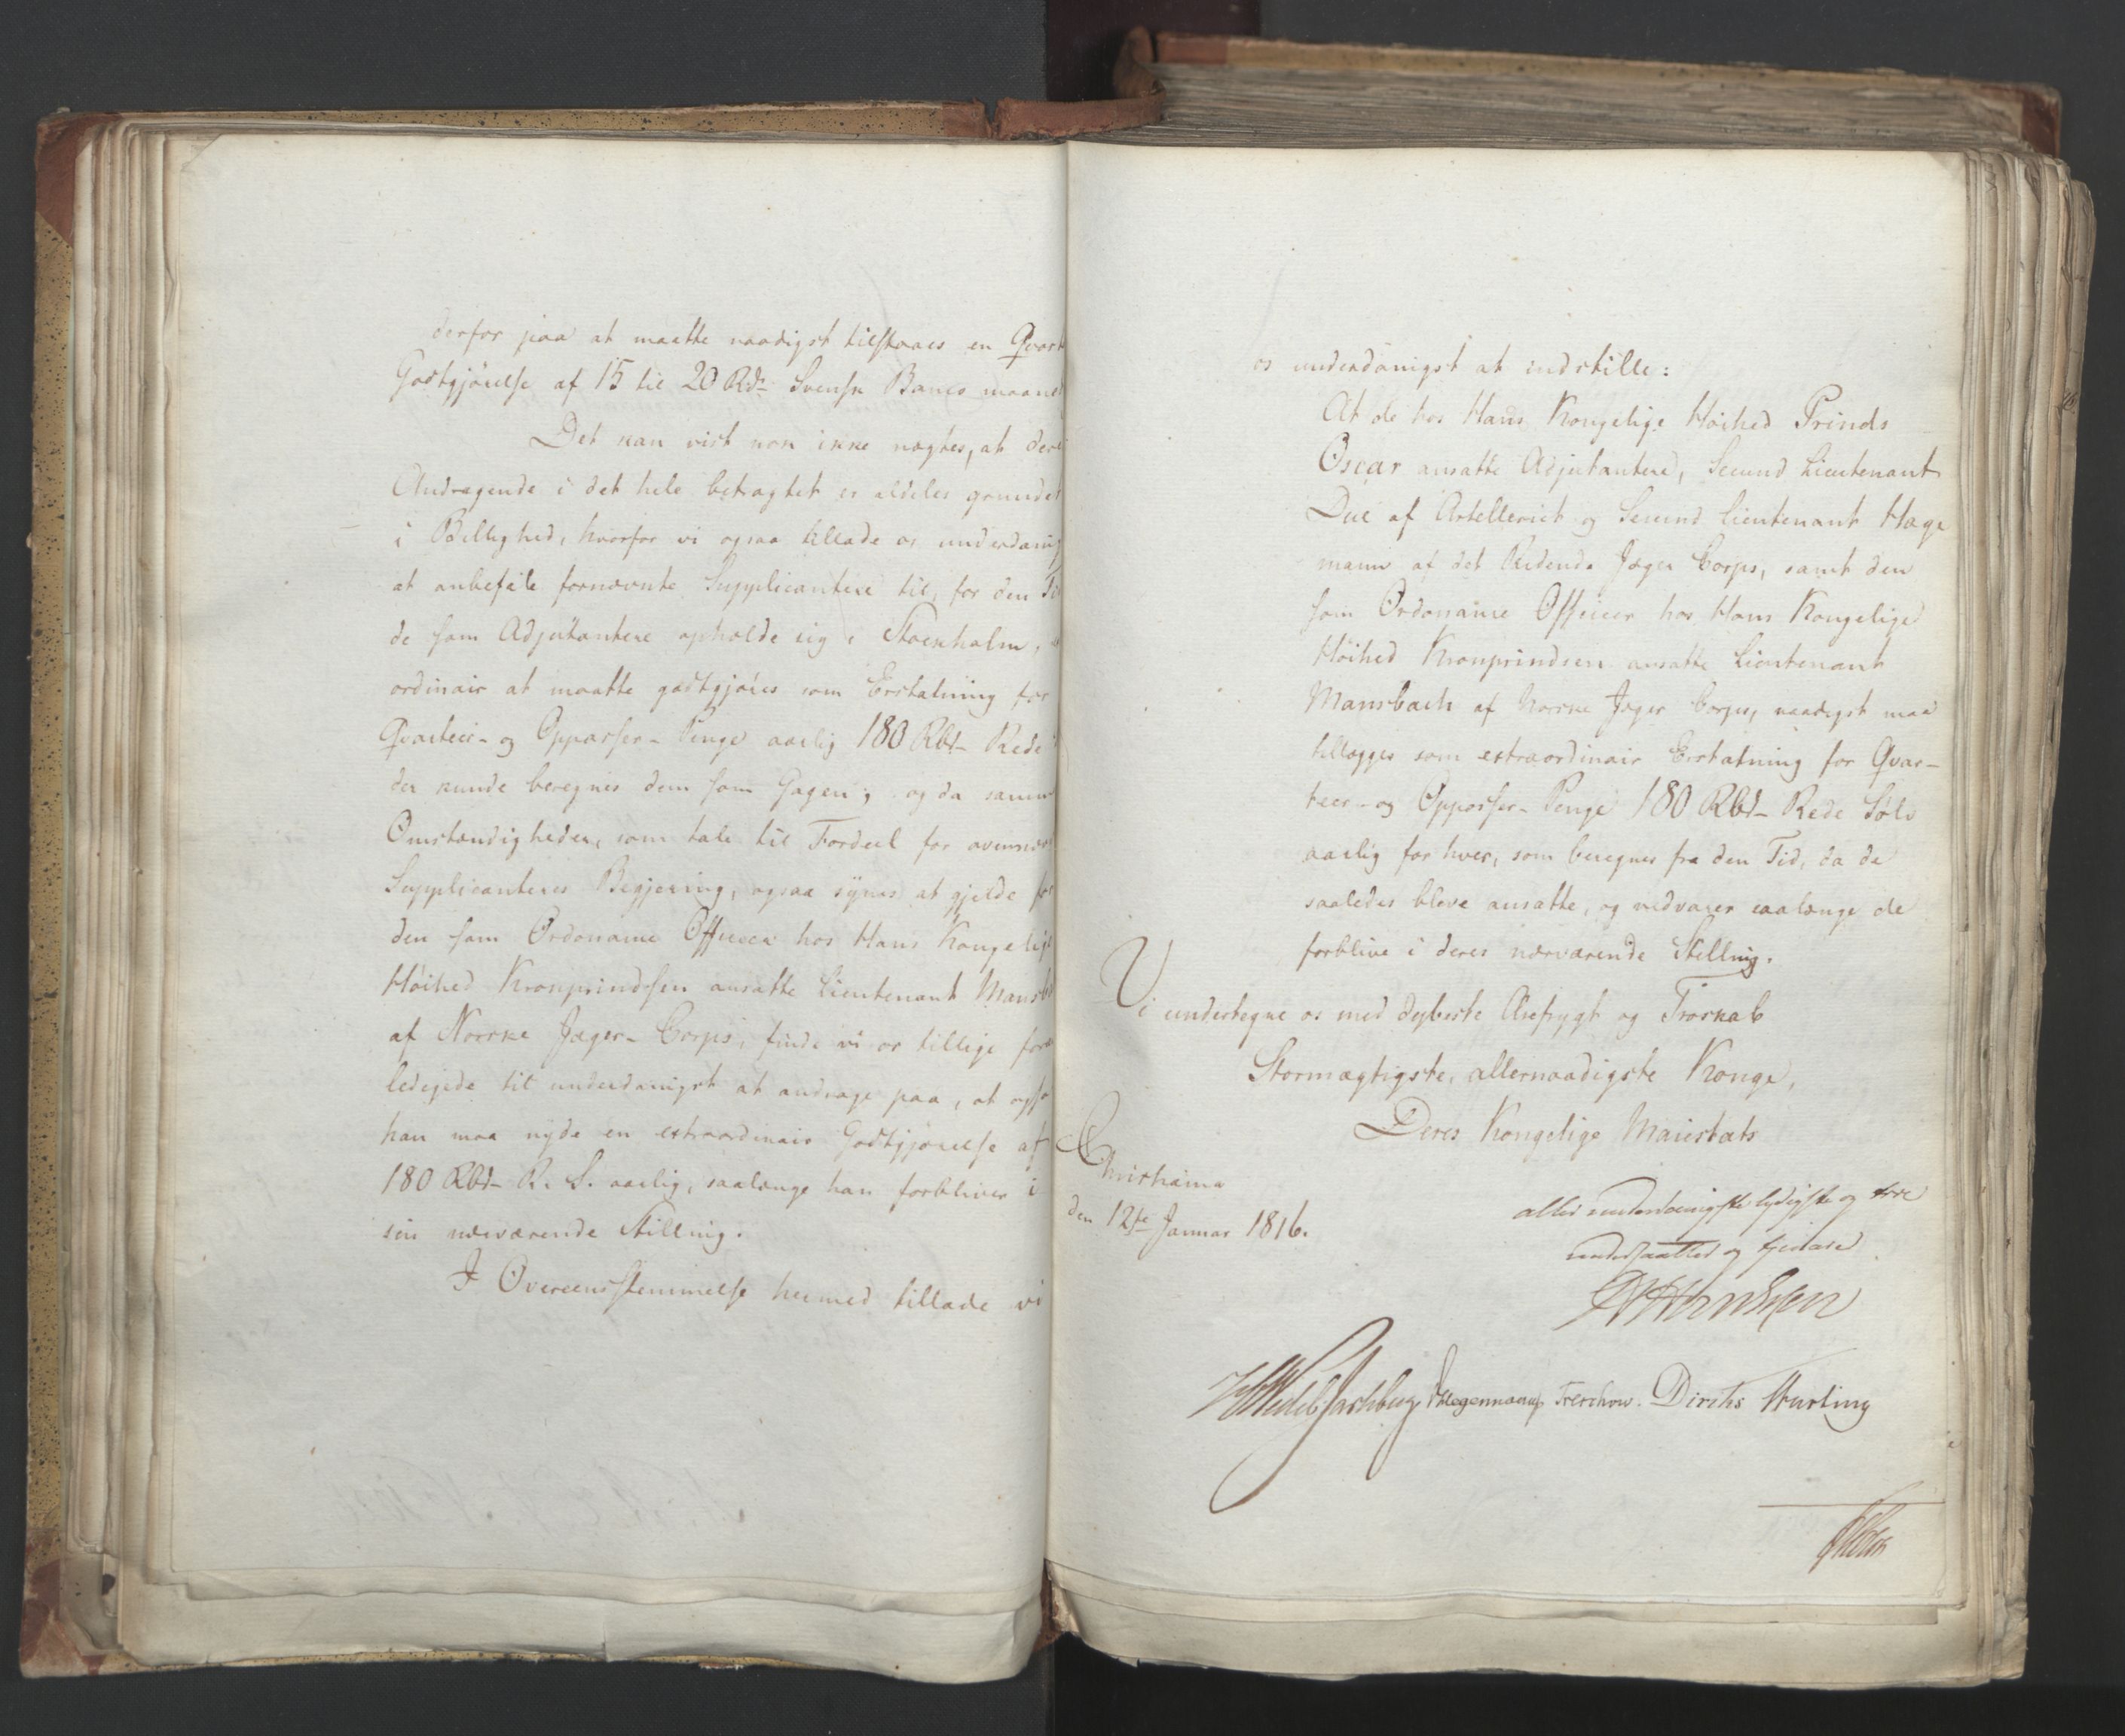 derfor paa at maatte naadigst tilstaaes en Qvart
Godtgjörelse af 15 til 20 Rd. Svensk Banco maaned
Det kan vist nok ikke nægtes, at dere
Andragende i det hele betragtet er aldeles grundet
i Billighed, hvorfor vi ogsaa tillade os underdanig
at anbefale fornævnte Supplicantere til, for den Ti
de som Adjutantere opholde sig i Stockholm,
ordinair at maatte godtgjöres som Erstatning for
Qvarteer- og Oppasser- Penge aarlig 180 Rbd- Rede
der kunde beregnes dem som Gagen; og da samme
Omstændigheder, som tale til Fordeel for ovennæv
Supplicanteres Begjering, ogsaa synes at gjelde for
den som Ordonance Officeer hos Hans Kongelige
Höihed Kronprindsen ansatte Lieutenant Mansb
af Norske Jæger- Corps, finde vi os tillige for
ledigede til underdanigst at andrage paa, at ogsa
han maa nyde en extraordinair Godtgjörelse af
180 Rbd- R. S. aarlig, saalænge han forbliver i
sin nærværende Stilling.
I Overeensstemmelse hermed tillade vi
os underdanigst at indstille:
At de hos Hans Kongelige Höihed Prinds
Oscar ansatte Adjutantere, Secund Lieutenant
Due af Artelleriet og Secund Lieutenant Hage
mann af det Ridende Jæger Corps, samt den
som Ordonance Officeer hos Hans Kongelige
Höihed Kronprindsen ansatte Lieutenant
Mansbach af Norske Jæger Corps, naadigst maa
tillægges som extraordinair Erstatning for Qvar-
teer- og Oppasser- Penge 180 Rbd- Rede Sölv
aarlig for hver, som beregnes fra den Tid, da de
saaledes bleve ansatte, og vedvarer saalænge de
forblive i deres nærværende Stilling.
Vi undertegne os med dybeste Ærefrygt og Troskab
Stormægtigste, allernaadigste Konge,
Deres Kongelige Maiestæts
Christiania
den 12te Januar 1816.
allerunderdanigste lydigste og troe
undersaatter og tjenere
HWedelJarlsberg Hegermann Treschow. Diriks Hurling